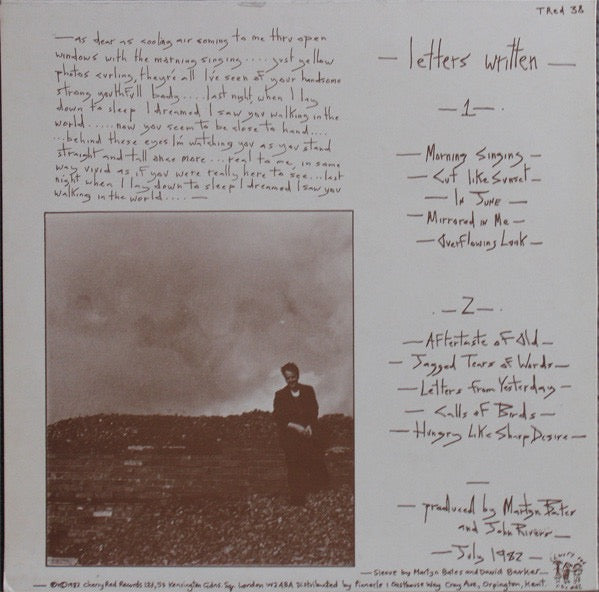 TRed 38
—as dear as cooling air coming to me thru open
windows with the morning singing.....just yellow
photos curling, they're all I've seen of your handsome
strong youthfull body....last night when I lay
down to sleep I dreamed I saw you walking in the
world.....now you seem to be close to hand....
...behind these eyes I'm watching you as you stand
straight and tall once more...real to me, in some
way vivid as if you were really here to see...last
night when I lay down to sleep I dreamed I saw you
walking in the world.... —
— letters written —
—1—.
— Morning Singing —
— Cut like Sunset —
— In June —
— Mirrored in Me —
— Overflowing Look —
.—2—.
— Aftertaste of Old —
— Jagged Tears of Words —
— Letters from Yesterday —
— Calls of Birds —
— Hungry Like Sharp Desire —
—
— produced by Martyn Bates
and John Rivers —
— July 1982 —
— Sleeve by Martyn Bates and David Barker —
— ©℗1982 Cherry Red Records Ltd, 53 Kensington Gdns. Sq. London W2 4BA Distributed by Pinnacle 1 Oasthouse Way Cray Ave, Orpington, Kent.